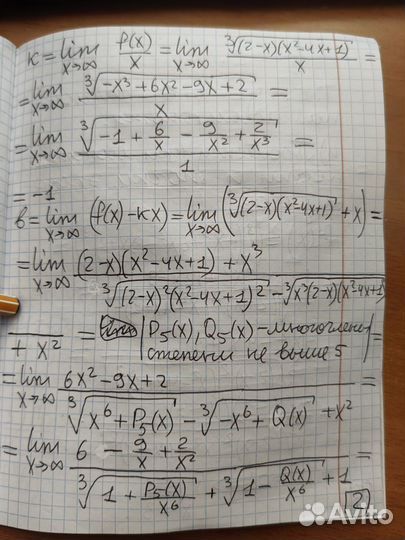 K = lim x→∞ f(x)/x = lim x→∞ ∛((2-x)(x²-4x+1))/x =
= lim x→∞ ∛(-x³+6x²-9x+2)/x =
= lim x→∞ ∛(-1+6/x-9/x²+2/x³)/1 =
= -1
b = lim x→∞ (f(x)-kx) = lim x→∞ (∛((2-x)(x²-4x+1)) + x) =
= lim x→∞ ((2-x)(x²-4x+1)+x³)/(∛((2-x)²(x²-4x+1)²) - ∛(x³(2-x)(x²-4x+1))
+ x²) = |P₅(x), Q₅(x) - многочлены
степени не выше 5| =
= lim x→∞ (6x²-9x+2)/(∛(x⁶+P₅(x)) - ∛(-x⁶+Q(x)) + x²) =
= lim x→∞ (6-9/x+2/x²)/(∛(1+P₅(x)/x⁶) + ∛(1-Q(x)/x⁶) + 1) =
2
Avito